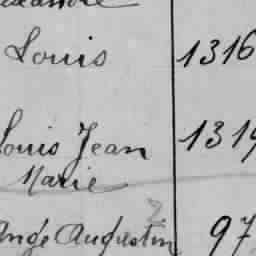 Louis 1316
Louis Jean 1319
Marie
2
Ange Augustin 97